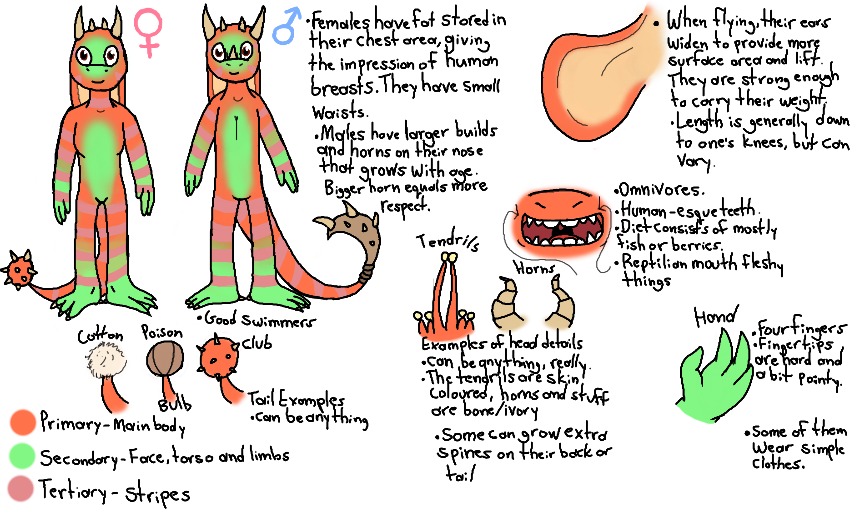 ♀
♂
•Females have fat stored in
their chest area, giving
the impression of human
breasts. They have small
waists.
•Males have larger builds
and horns on their nose
that grows with age.
Bigger horn equals more
respect.
•When flying, their ears
widen to provide more
surface area and lift.
They are strong enough
to carry their weight,
•Length is generally down
to one's knees, but can
vary.
•Omnivores.
•Human-esque teeth.
•Diet consists of mostly
fish or berries.
•Reptilian mouth fleshy
things
Tendrils
Horns
Examples of head details
•Can be anything, really.
•The tendrils are skin
coloured, horns and stuff
are bone/ivory
•Some can grow extra
spines on their back or
tail
Hand
•Four fingers
•Fingertips
are hard and
a bit pointy.
•Some of them
wear simple
clothes.
•Good swimmers
Cotton
Poison
Bulb
Club
Tail Examples
•Can be anything
Primary-Main body
Secondary-Face, torso and limbs
Tertiary-Stripes